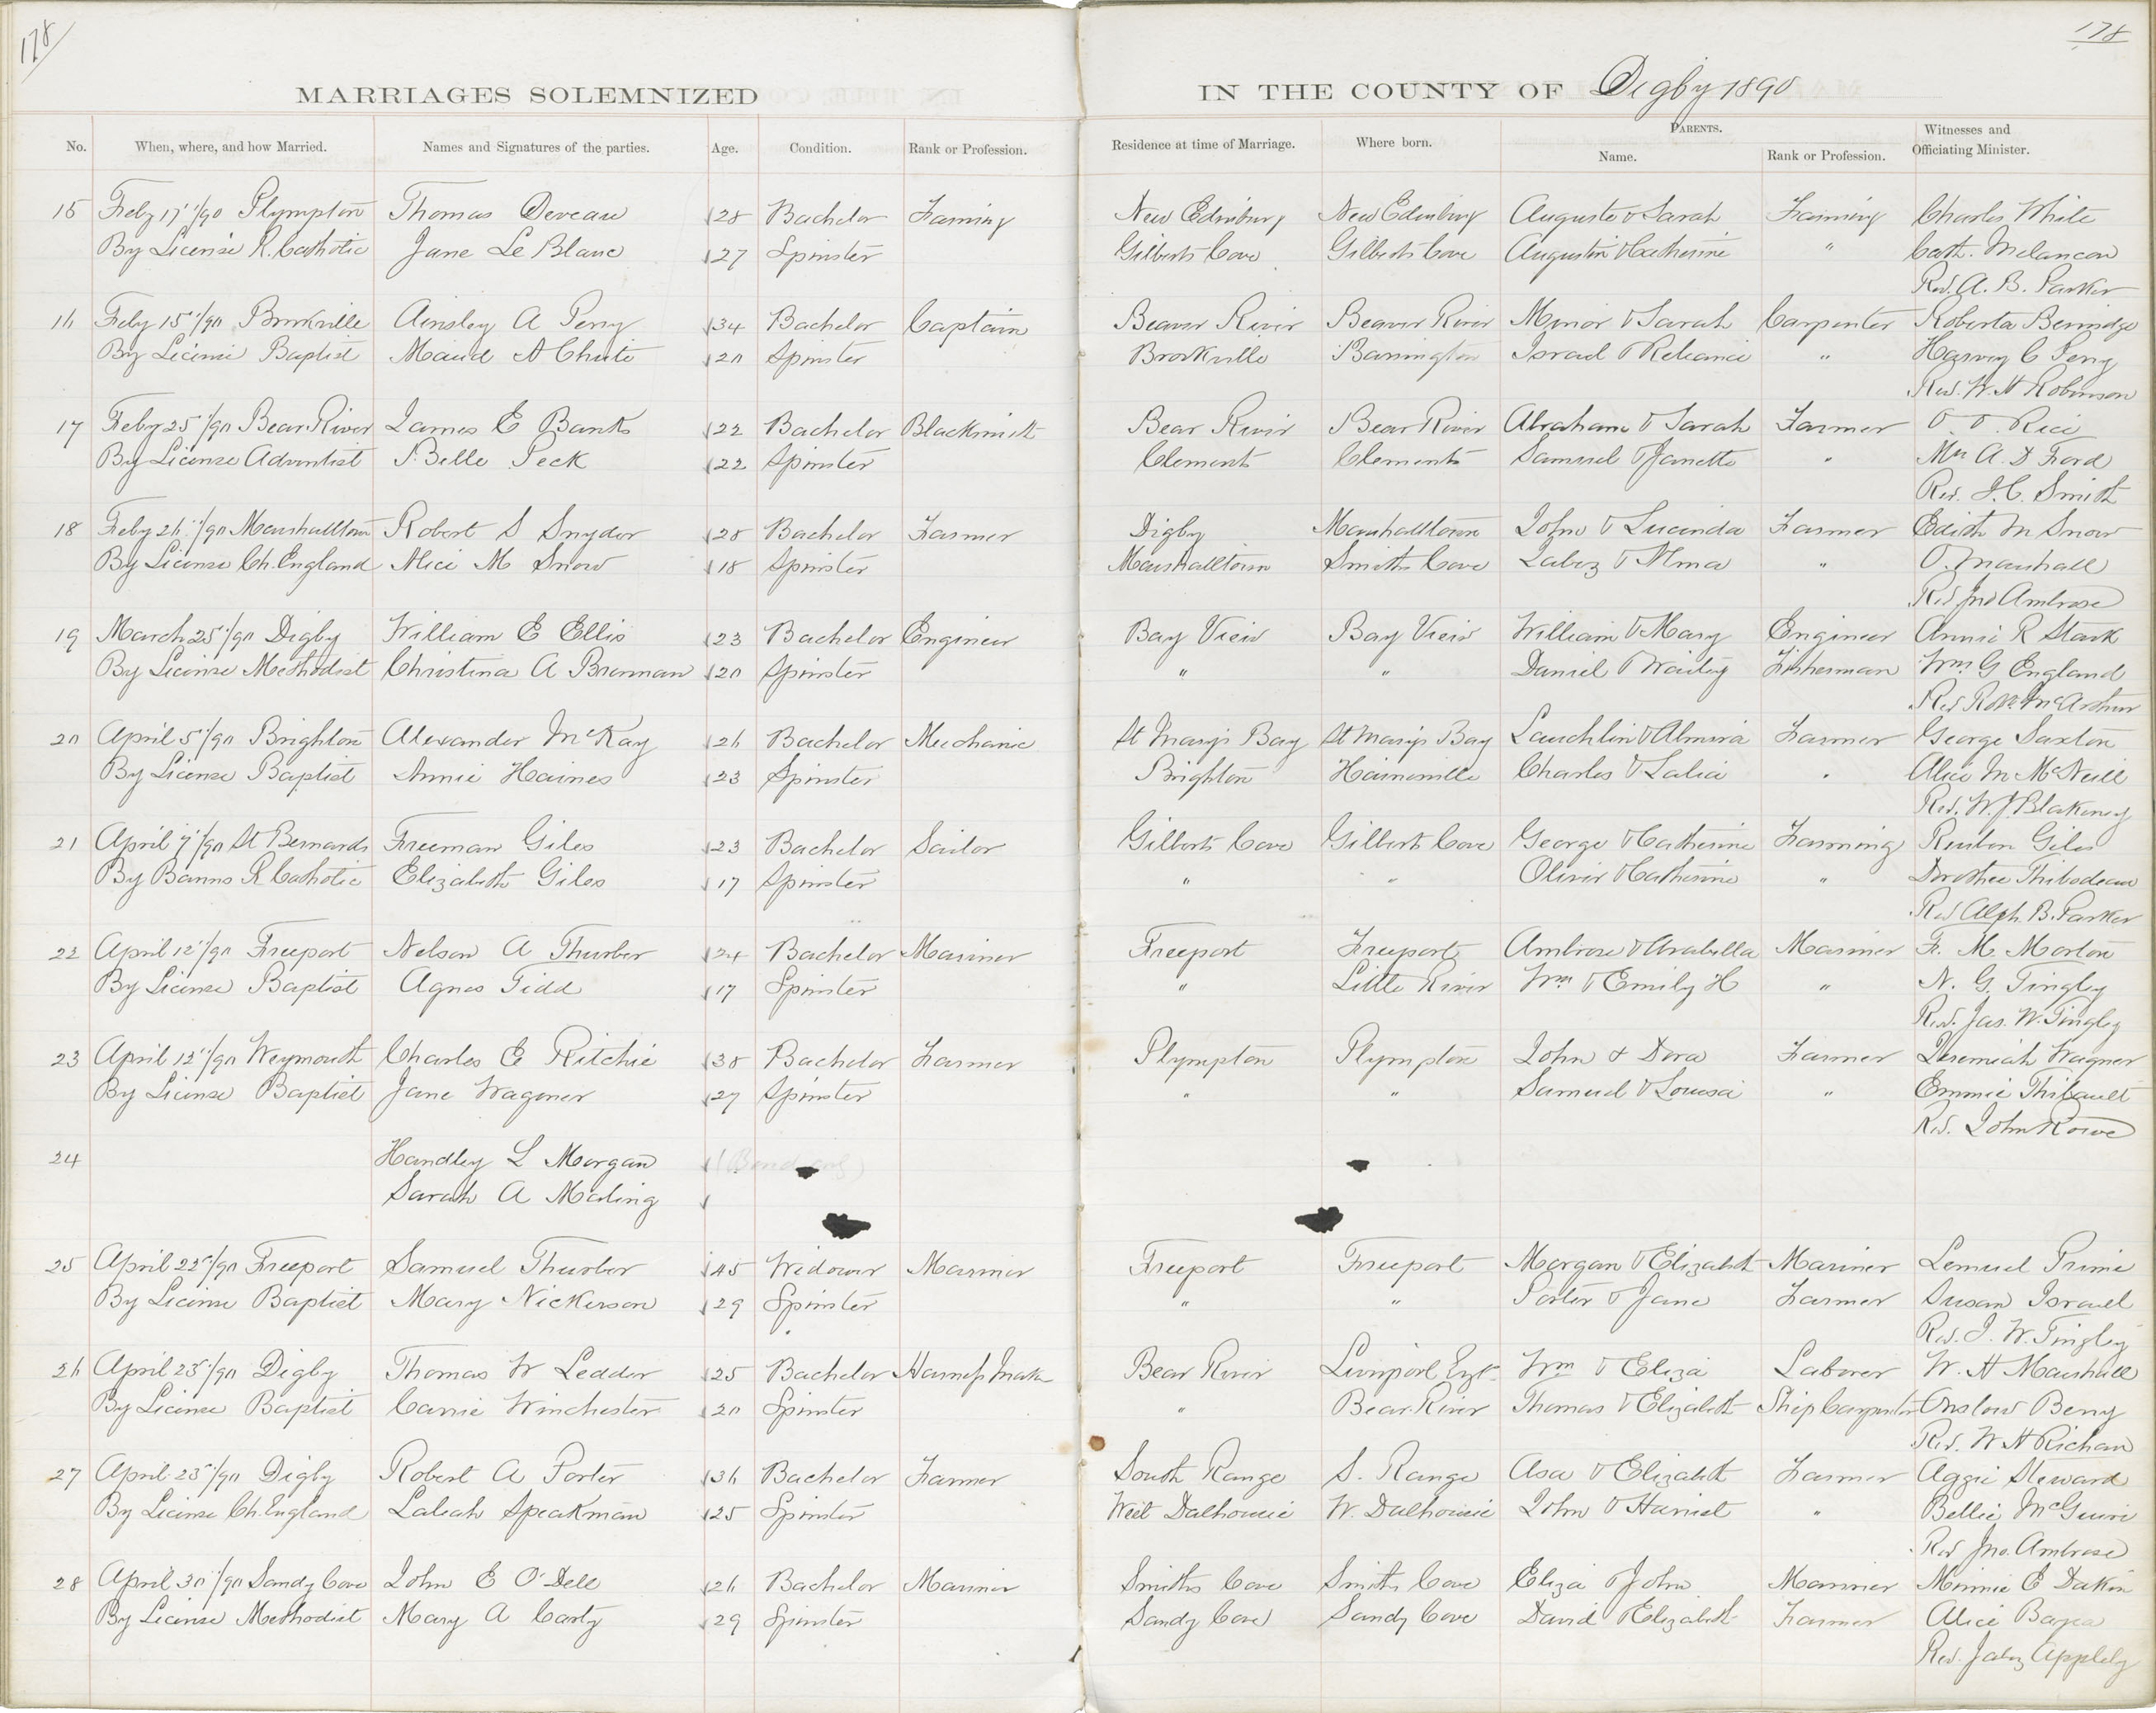 178
178
MARRIAGES SOLEMNIZED IN THE COUNTY OF Digby 1890
No. When, where, and how Married. Names and Signatures of the parties. Age. Condition. Rank or Profession. Residence at time of Marriage. Where born. PARENTS. Name. Rank or Profession. Witnesses and Officiating Minister.
15 Feby 17"/90 Plympton Thomas Deveau 28 Bachelor Farming New Edinburg New Edinburg Auguste & Sarah Farming Charles White
By License R. Catholic Jane Le Blanc 27 Spinster Gilberts Cove Gilberts Cove Augustin & Catherine " Cath. Melancon
Rev. A. B. Parker
16 Feby 15"/90 Brookville Ainsley A Perry 34 Bachelor Captain Beaver River Beaver River Minor & Sarah Carpenter Roberta
By License Baptist Maud A Chute 20 Spinster Brookville Barrington Israel & Reliance " Harvey C Perry
Rev. W. H Robinson
17 Feby 25"/90 Bear River James E Banks 22 Bachelor Blacksmith Bear River Bear River Abraham & Sarah Farmer Rice
By License Adventist Belle Peck 22 Spinster Clements Clements Samuel & Janette " Mrs A. D Ford
Rev. J. C. Smith
18 Feby 26"/90 Marshalltown Robert S Snyder 28 Bachelor Farmer Digby Marshalltown John & Lucinda Farmer Edith M Snow
By License Ch. England Alice M Snow 18 Spinster Marshalltown Smiths Cove Jabez & Alma " O. Marshall
Rev Jno Ambrose
19 March 25"/90 Digby William E Ellis 23 Bachelor Engineer Bay View Bay View William & Mary Engineer Annie R Stark
By License Methodist Christina A Brennan 20 Spinster " " Daniel & Waity Fisherman Wm G England
Rev McArthur
20 April 5"/90 Brighton Alexander McKay 26 Bachelor Mechanic St Marys Bay St Marys Bay Lauchlin & Almira Farmer George Saxton
By License Baptist Annie Haines 23 Spinster Brighton Hainesville Charles & Lalia " Alice M McNeill
Rev. W. J Blakeney
21 April 7"/90 St Bernards Freeman Giles 23 Bachelor Sailor Gilberts Cove Gilberts Cove George & Catherine Farming Reuben Giles
By Banns R Catholic Elizabeth Giles 17 Spinster " " Oliver & Catherine " Dorothee Thibodeau
Rev Alph. B. Parker
22 April 12"/90 Freeport Nelson A Thurber 24 Bachelor Mariner Freeport Freeport Ambrose & Arabella Mariner F. M. Morton
By License Baptist Agnes Tidd 17 Spinster " Little River Wm & Emily H " N. G. Tingley
Rev. Jas. W. Tingley
23 April 12"/90 Weymouth Charles E Ritchie 38 Bachelor Farmer Plympton Plympton John & Dora Farmer Jeremiah Wagner
By License Baptist Jane Wagoner 27 Spinster " " Samuel & Louisa " Emmie Thibault
Rev. John Rowe
24 Handley L Morgan
Sarah A Maling
25 April 22"/90 Freeport Samuel Thurber 45 Widower Mariner Freeport Freeport Morgan & Elizabeth Mariner Lemuel Prime
By License Baptist Mary Nickerson 29 Spinster " " Porter & Jane Farmer Susan Israel
Rev. J. W. Tingley
26 April 23"/90 Digby Thomas W Ledder 25 Bachelor Harness Maker Bear River Liverpool Engl Wm & Eliza Laborer W. H Marshall
By License Baptist Carrie Winchester 20 Spinster " Bear River Thomas & Elizabeth Ship Carpenter Onslow Berry
Rev. W H Richan
27 April 23"/90 Digby Robert A Porter 36 Bachelor Farmer South Range S. Range Asa & Elizabeth Farmer Aggie Steward
By License Ch. England Laleah Speakman 25 Spinster West Dalhousie W. Dalhousie John & Harriet " Bellie McGuire
Rev Jno. Ambrose
28 April 30"/90 Sandy Cove John E O'Dell 26 Bachelor Mariner Smiths Cove Smiths Cove Eliza & John Mariner Minnie E Dakin
By License Methodist Mary A Carty 29 Spinster Sandy Cove Sandy Cove David & Elizabeth Farmer Alice
Rev. Jabez Appleby